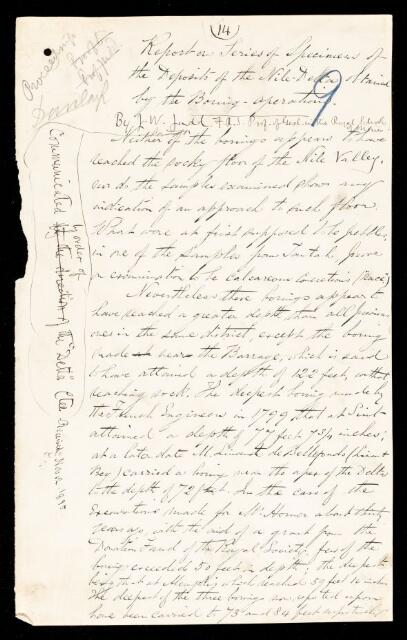 (14)
9
Proceedings
Dunlop
Report on Series of Specimens of
the Deposits of the Nile-Delta obtained
by the Boring-operations.
By J. W. Judd F.R.S. Prof. of Geol. in the Royal School
Neither of the borings appears to have
reached the rocky floor of the Nile Valley,
nor do the samples examined show any
indication of an approach to such floor.
What were at first supposed to be pebbles,
in one of the samples from Tantah, prove
on examination to be calcareous concretions (Race)
Nevertheless these borings appear to
have reached a greater depth than all previous
ones in the same district, except the boring
made near the Barrage, which is said
to have attained a depth of 122 feet, without
reaching rock. The deepest boring made by
the French Engineers in 1799 that at Siout
attained a depth of 77 feet 7 3/4 inches;
at a later date M. Linant de Bellefonds (Linant
Bey) carried a boring near the apex of the Delta
to the depth of 72 feet. In the case of the
excavations made for Mr Horner about thirty
years ago, with the aid of a grant from the
Donation Fund of the Royal Society, few of the
borings exceeded 50 feet in depth; the deepest
being that at Memphis, which reached 59 feet 10 inches
The deepest of the three borings now reported upon
have been carried to 73 and 84 feet respectively
Communicated by order of
the direction of the "Delta" Ctee